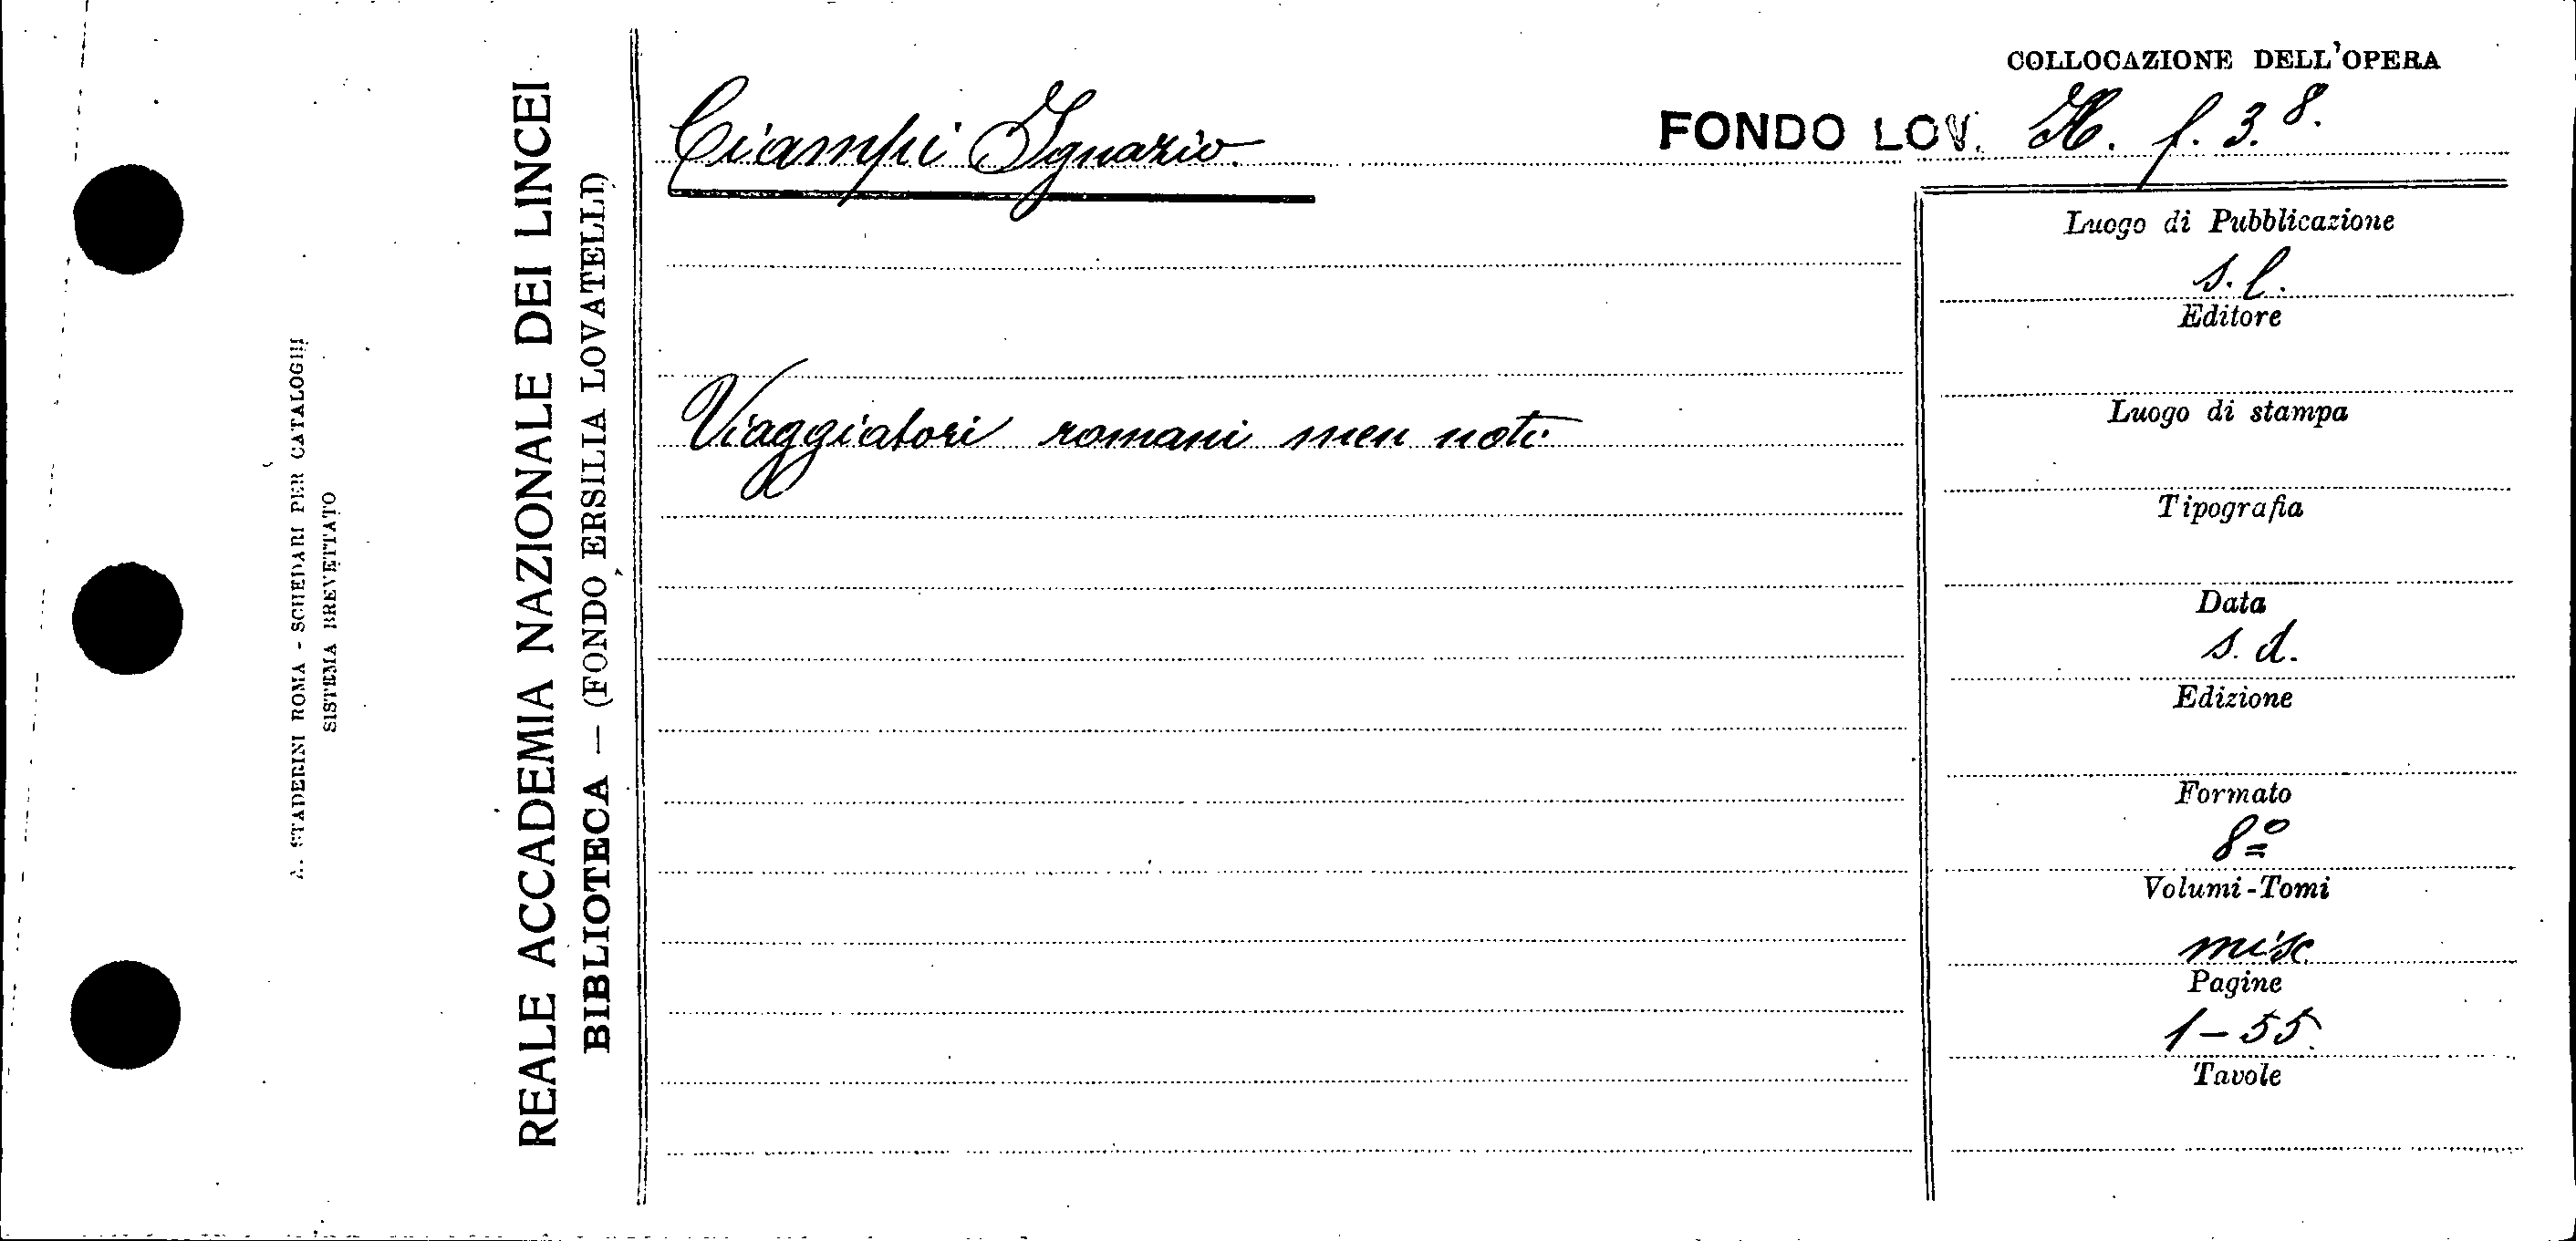 A. STADERINI ROMA - SCHEDARI PER CATALOGHI
SISTEMA BREVETTATO
REALE ACCADEMIA NAZIONALE DEI LINCEI
BIBLIOTECA — (FONDO ERSILIA LOVATELLI)
COLLOCAZIONE DELL'OPERA
Ciampi Ignazio.
FONDO LOV. H. f. 3. 8.
Viaggiatori romani men noti
Luogo di Pubblicazione
s. l.
Editore
Luogo di stampa
Tipografia
Data
s. d.
Edizione
Formato
8º
Volumi-Tomi
misc
Pagine
1-55.
Tavole